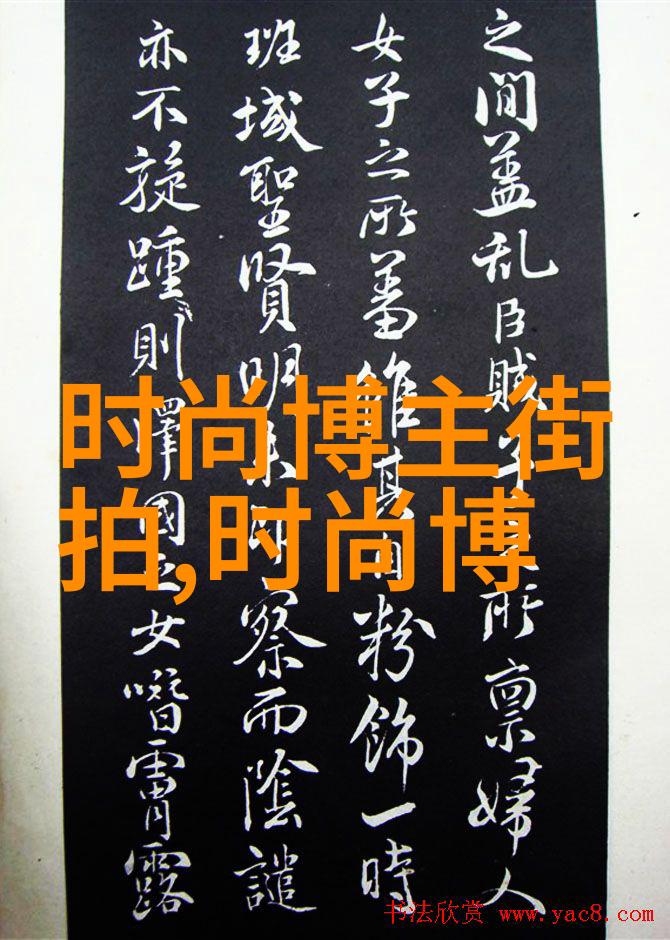 之間盖乱臣賊所禀婦人
女子之所其自粉飾一時
班域聖賢明察而陰譴
亦不旋踵則國之女露
时尚博主街
拍,时尚博
书法欣赏 www.yac8.com